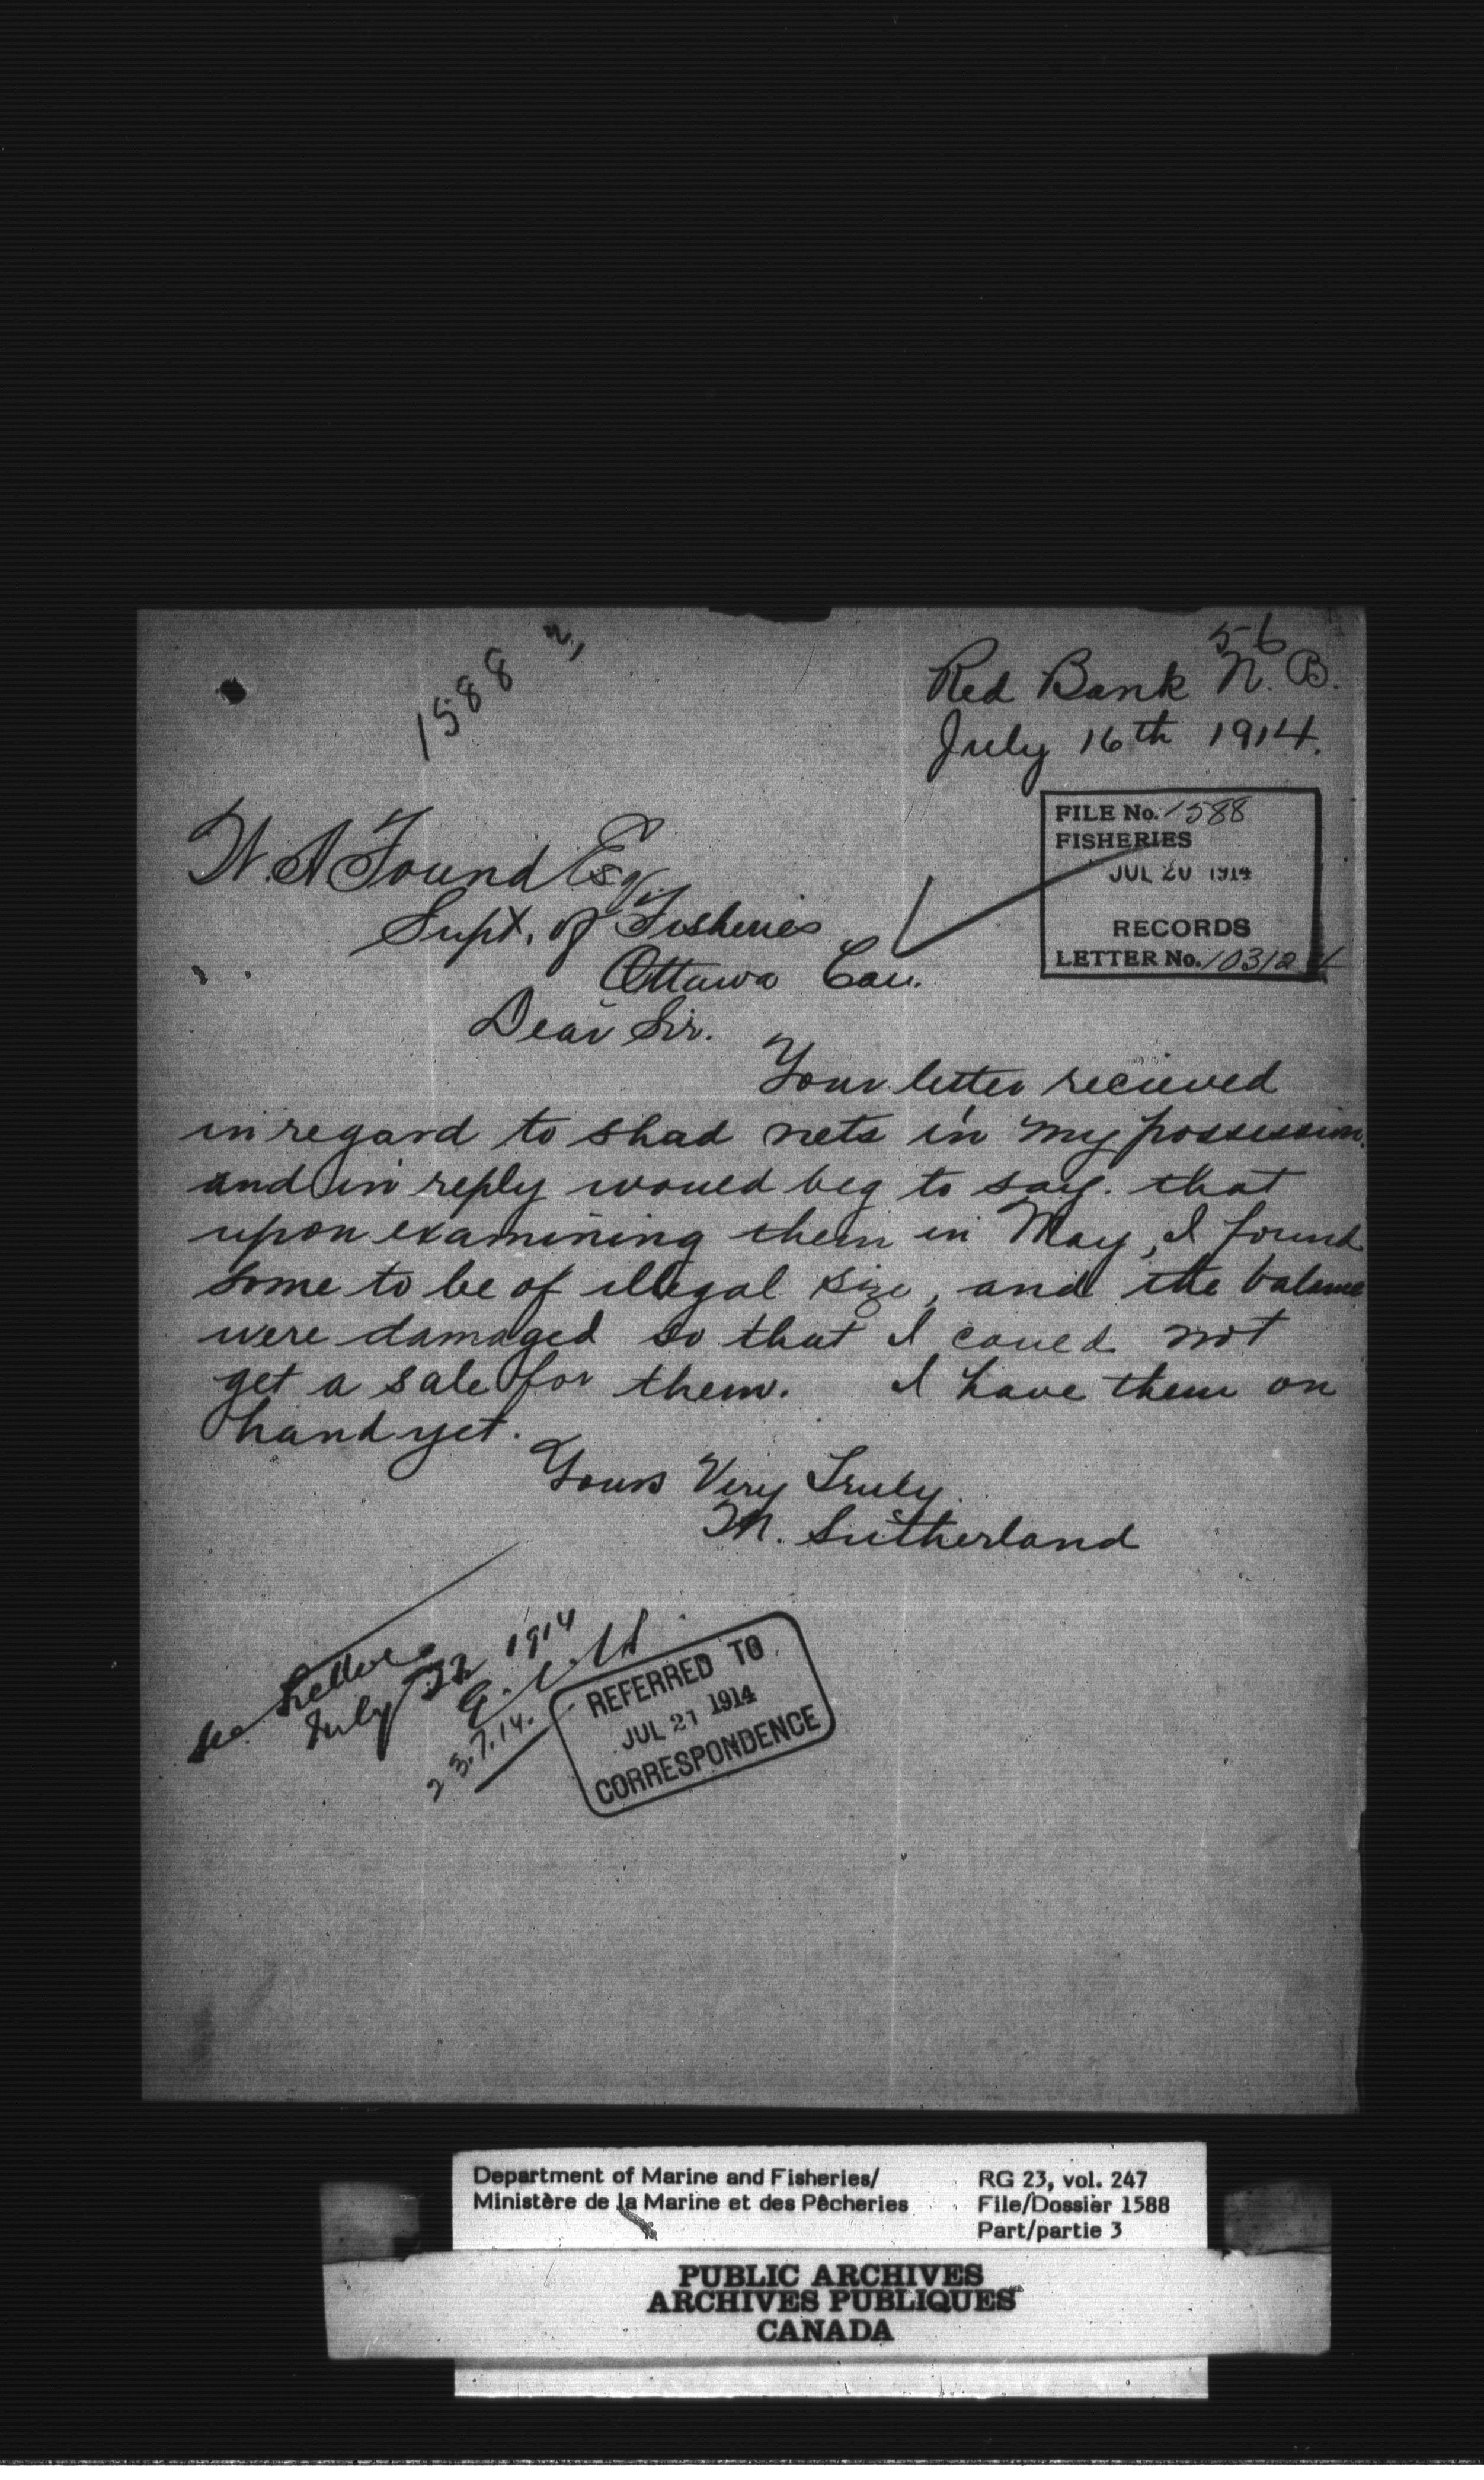 56
1588
Red Bank N. B.
July 16th 1914.
FILE No. 1588
FISHERIES
JUL 20 1914
RECORDS
LETTER No. 103124
W. A Found Esq.
Supt. of Fisheries
Ottawa Can.
Dear Sir.
Your letter recieved
in regard to shad nets in my possession.
and in reply would beg to say. that
upon examining them in May, I found
some to be of illegal size, and the balance
were damaged so that I could not
get a sale for them. I have them on
hand yet.
Yours Very Truly.
M. Sutherland
See letter
July 22 1914
23.7.14.
REFERRED TO
JUL 21 1914
CORRESPONDENCE
Department of Marine and Fisheries/
Ministère de la Marine et des Pêcheries
RG 23, vol. 247
File/Dossier 1588
Part/partie 3
PUBLIC ARCHIVES
ARCHIVES PUBLIQUES
CANADA